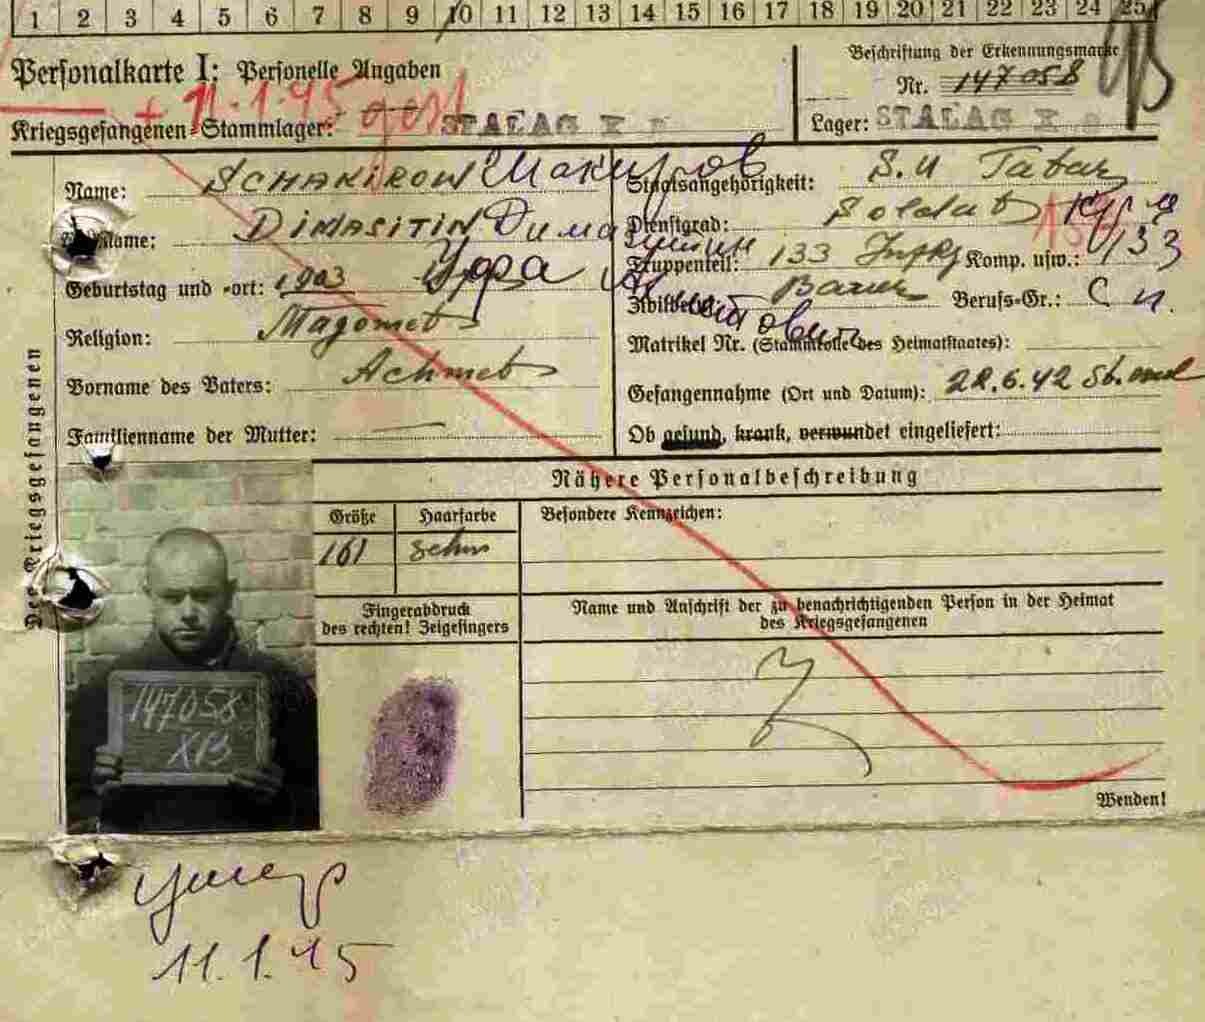 1 2 3 4 5 6 7 8 9 10 11 12 13 14 15 16 17 18 19 20 21 22 23 24 25
Personalkarte I: Personelle Angaben
+ 11.1.45 gest
Kriegsgefangenen-Stammlager: STALAG X B
Beschriftung der Erkennungsmarke
Nr. 147058
Lager: STALAG X B
Des Kriegsgefangenen
Name: SCHAKIROW Шакиров
Vorname: DIMASITIN
Geburtstag und -ort: 1903 Уфа
Religion: Magomet
Vorname des Vaters: Achmet
Familienname der Mutter: —
Staatsangehörigkeit: S.U Tatar
Dienstgrad: Soldat
Truppenteil: 133 Komp. usw.: 133
Zivilberuf: Bauer Berufs-Gr.:
Matrikel Nr. (Stammrolle des Heimatstaates):
Gefangennahme (Ort und Datum): 22.6.42
Ob gesund, krank, verwundet eingeliefert:
Nähere Personalbeschreibung
Größe Haarfarbe Besondere Kennzeichen:
161 schw
Fingerabdruck
des rechten! Zeigefingers
Name und Anschrift der zu benachrichtigenden Person in der Heimat
des Kriegsgefangenen
147058
XB
Wenden!
умер
11.1.45